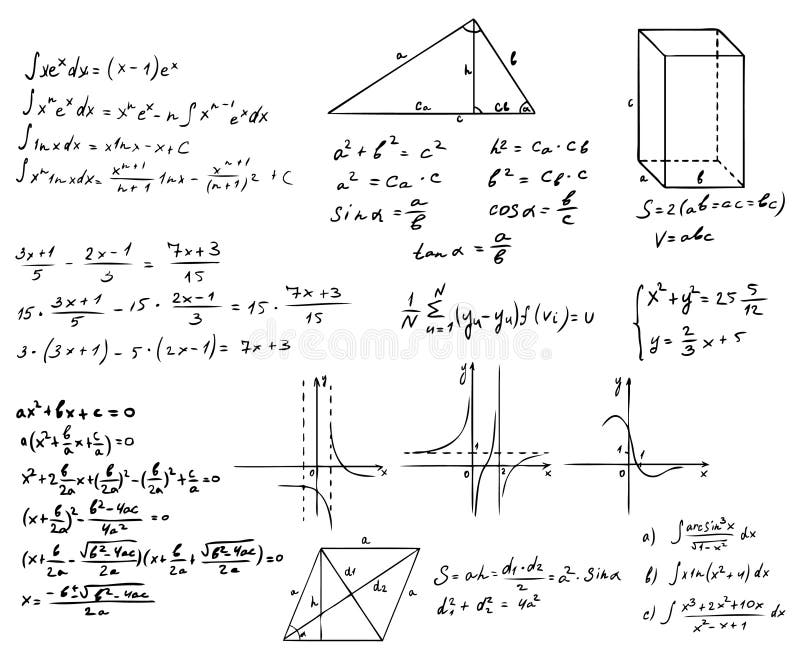 ∫xeˣdx = (x-1)eˣ
∫xⁿeˣdx = xⁿeˣ - n∫xⁿ⁻¹eˣdx
∫lnxdx = xlnx - x + C
∫xⁿlnxdx = xⁿ⁺¹/(n+1) lnx - xⁿ⁺¹/(n+1)² + C
a
b
h
ca
cb
c
α
a² + b² = c²
h² = ca · cb
a² = ca · c
b² = cb · c
sinα = a/b
cosα = b/c
tanα = a/b
c
a
b
S = 2(ab = ac = bc)
V = abc
(3x+1)/5 - (2x-1)/3 = (7x+3)/15
15 · (3x+1)/5 - 15 · (2x-1)/3 = 15 · (7x+3)/15
3·(3x+1) - 5·(2x-1) = 7x+3
1/N ∑ᴺᵤ₌₁ (yu - yu)f(vi) = u
{ x² + y² = 25 5/12
y = 2/3 x + 5
dreamstime
ax² + bx + c = 0
a(x² + b/a x + c/a) = 0
x² + 2 b/2a x + (b/2a)² - (b/2a)² + c/a = 0
(x + b/2a)² - (b² - 4ac)/4a² = 0
(x + b/2a - √(b²-4ac)/2a)(x + b/2a + √(b²-4ac)/2a) = 0
x = (-b ± √(b² - 4ac))/2a
y
0
x
y
1
0
2
x
y
1
1
0
x
a
a
h
d1
d2
a
S = ah = (d1·d2)/2 = a² · sinα
d₁² + d₂² = 4a²
a) ∫ arcsin³x/√(1-x²) dx
b) ∫xln(x²+4)dx
c) ∫ (x³+2x²+10x)/(x²-x+1) dx